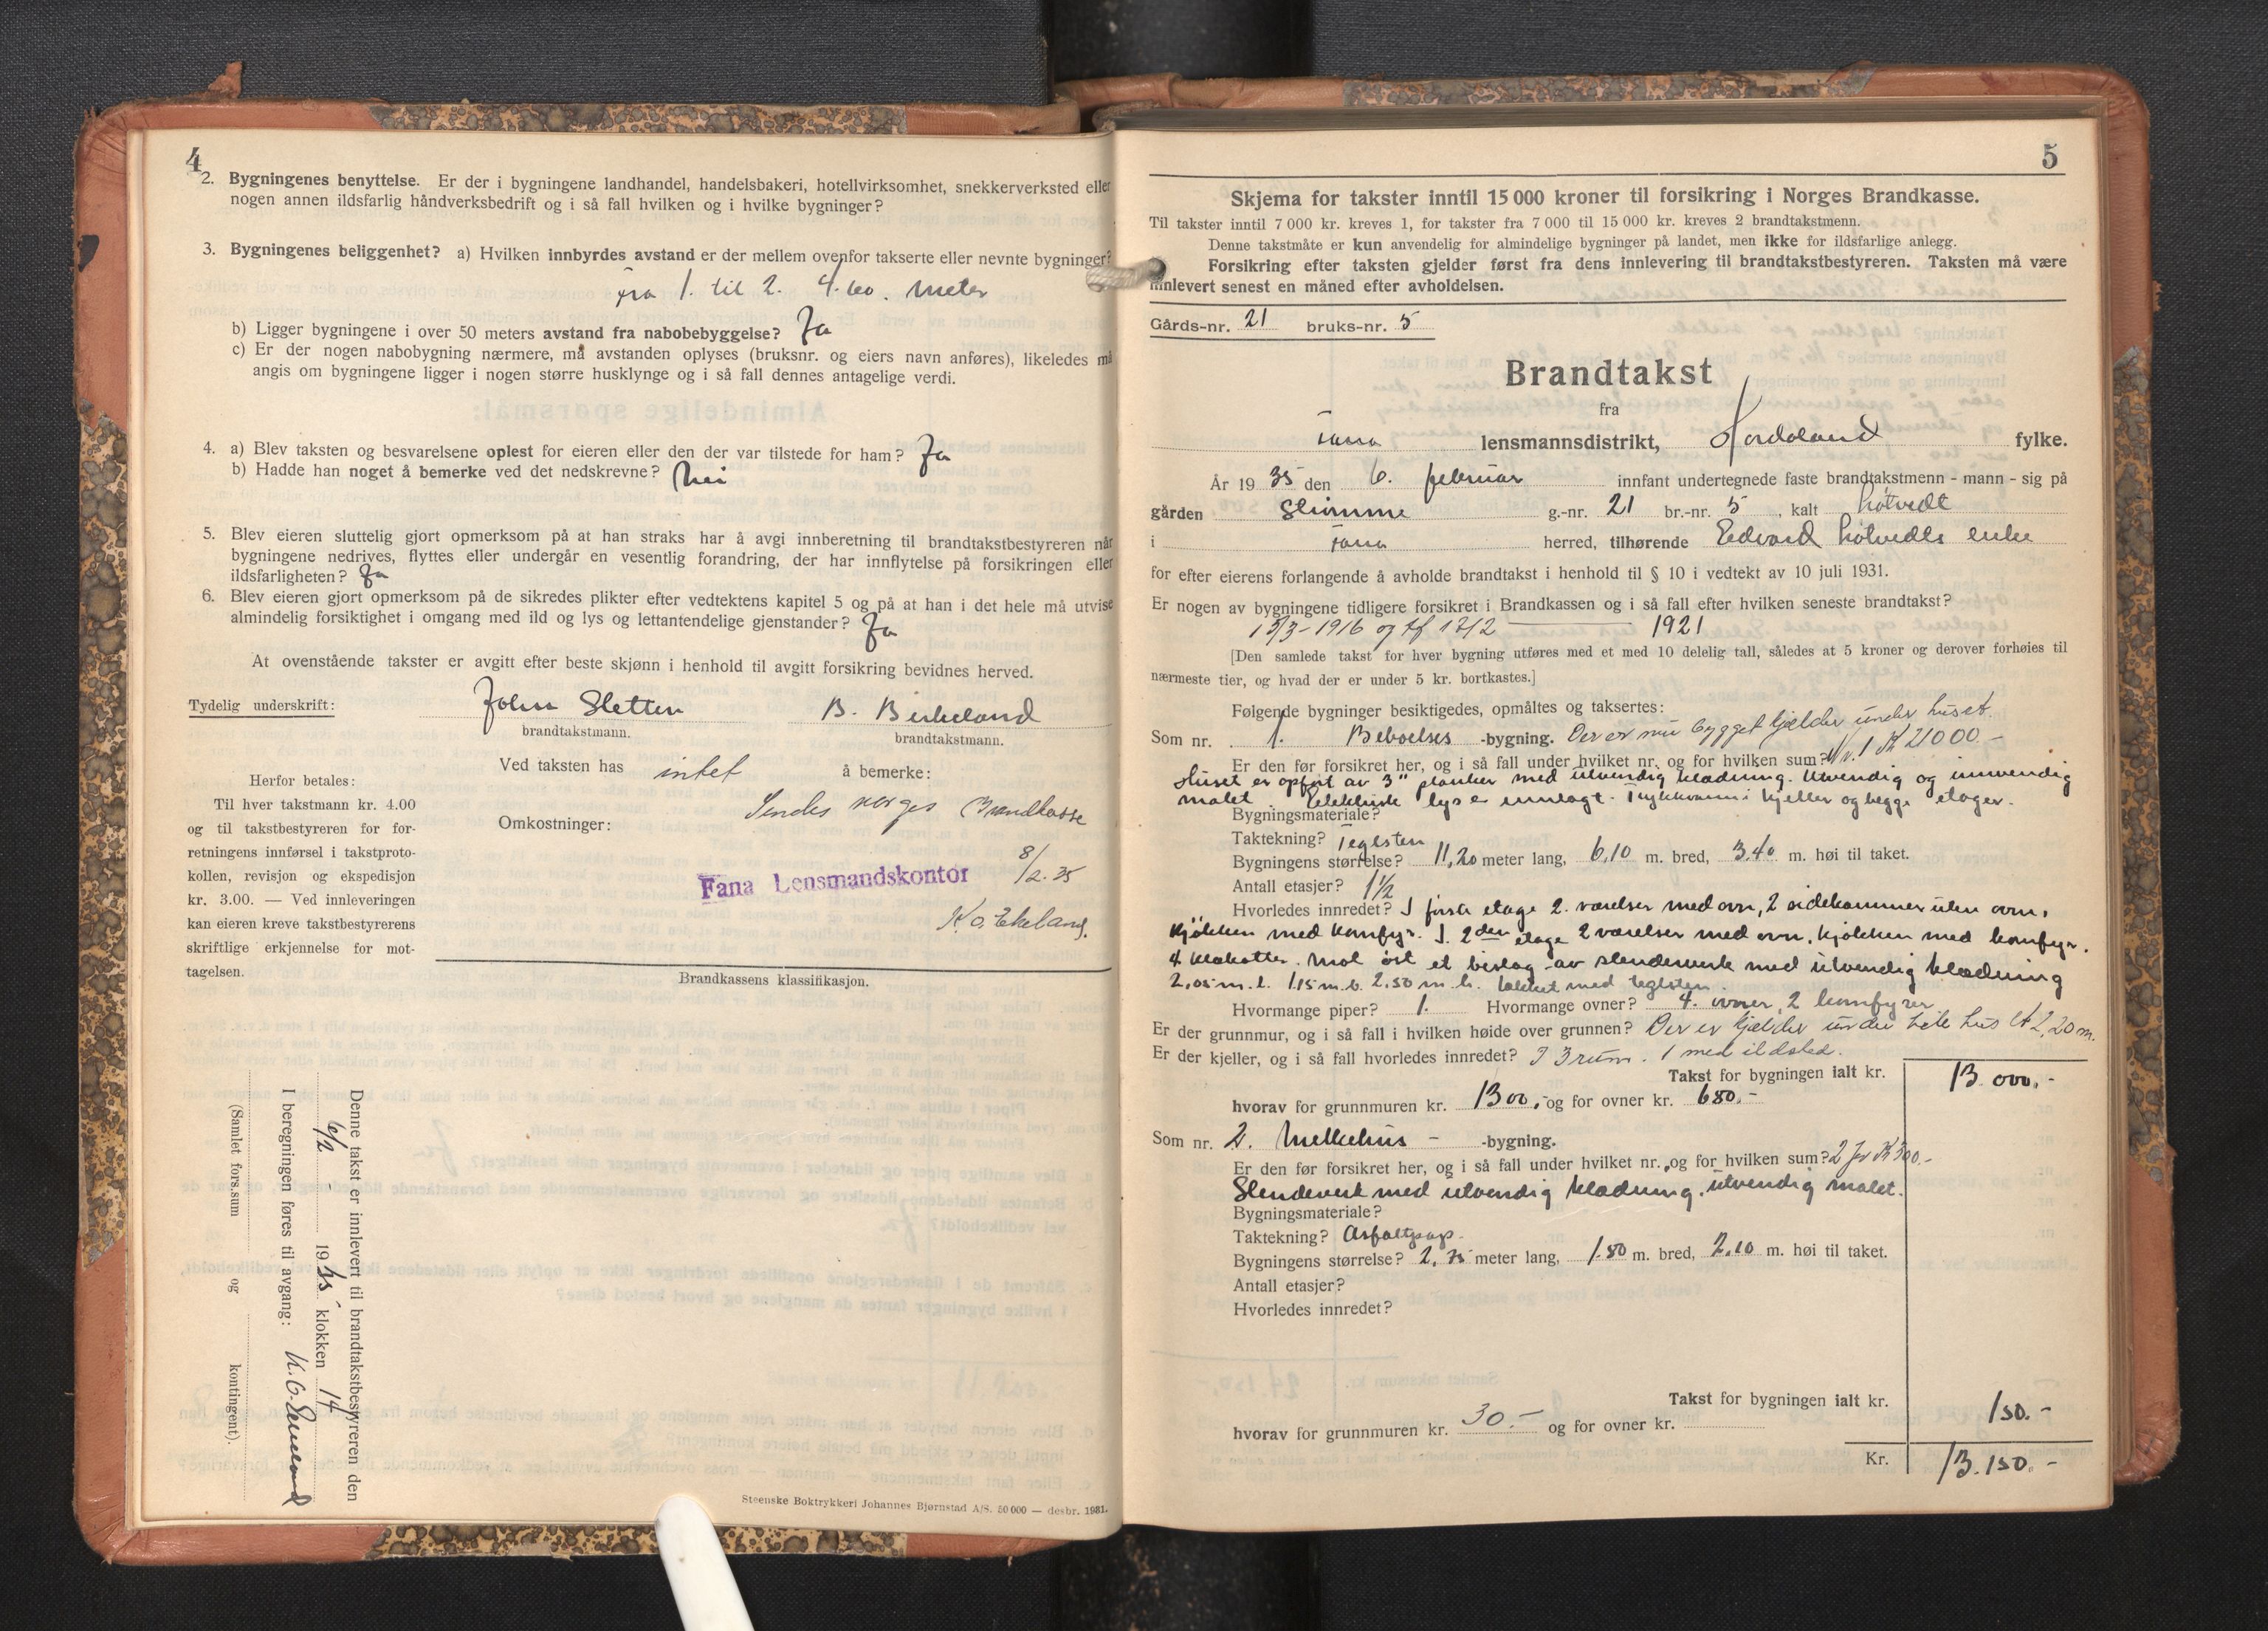 4
2. Bygningenes benyttelse. Er der i bygningene landhandel, handelsbakeri, hotellvirksomhet, snekkerverksted eller
nogen annen ildsfarlig håndverksbedrift og i så fall hvilken og i hvilke bygninger?
3. Bygningenes beliggenhet? a) Hvilken innbyrdes avstand er der mellem ovenfor takserte eller nevnte bygninger?
fra 1. til 2. 4.60. meter
b) Ligger bygningene i over 50 meters avstand fra nabobebyggelse? Ja
c) Er der nogen nabobygning nærmere, må avstanden oplyses (bruksnr. og eiers navn anføres), likeledes må
angis om bygningene ligger i nogen større husklynge og i så fall dennes antagelige verdi.
4. a) Blev taksten og besvarelsene oplest for eieren eller den der var tilstede for ham? Ja
b) Hadde han noget å bemerke ved det nedskrevne? Nei
5. Blev eieren sluttelig gjort opmerksom på at han straks har å avgi innberetning til brandtakstbestyreren når
bygningene nedrives, flyttes eller undergår en vesentlig forandring, der har innflytelse på forsikringen eller
ildsfarligheten? Ja
6. Blev eieren gjort opmerksom på de sikredes plikter efter vedtektens kapitel 5 og på at han i det hele må utvise
almindelig forsiktighet i omgang med ild og lys og lettantendelige gjenstander? Ja
At ovenstående takster er avgitt efter beste skjønn i henhold til avgitt forsikring bevidnes herved.
Tydelig underskrift: John Sletten B. Birkeland
brandtakstmann. brandtakstmann.
Ved taksten has intet å bemerke:
Herfor betales:
Til hver takstmann kr. 4.00
og til takstbestyreren for for-
retningens innførsel i takstproto-
kollen, revisjon og ekspedisjon
kr. 3.00. — Ved innleveringen
kan eieren kreve takstbestyrerens
skriftlige erkjennelse for mot-
tagelsen.
Sendes Norges Brandkasse
Omkostninger:
8/2.35
Fana Lensmandskontor
Brandkassens klassifikasjon.
Denne takst er innlevert til brandtakstbestyreren den
6/2 - 1935 klokken 14
I beregningen føres til avgang:
(Samlet fors.sum og kontingent).
Steenske Boktrykkeri Johannes Bjørnstad A/S. 50 000 — desbr. 1931.
5
Skjema for takster inntil 15 000 kroner til forsikring i Norges Brandkasse.
Til takster inntil 7 000 kr. kreves 1, for takster fra 7 000 til 15 000 kr. kreves 2 brandtakstmenn.
Denne takstmåte er kun anvendelig for almindelige bygninger på landet, men ikke for ildsfarlige anlegg.
Forsikring efter taksten gjelder først fra dens innlevering til brandtakstbestyreren. Taksten må være
innlevert senest en måned efter avholdelsen.
Gårds-nr. 21 bruks-nr. 5
Brandtakst
fra
Fana lensmannsdistrikt, Hordaland fylke.
År 1935 den 6. februar innfant undertegnede faste brandtakstmenn - mann - sig på
gården Slimme g.-nr. 21 br.-nr. 5, kalt Løtvedt
i Fana herred, tilhørende Edvard Løtvedts enke
for efter eierens forlangende å avholde brandtakst i henhold til § 10 i vedtekt av 10 juli 1931.
Er nogen av bygningene tidligere forsikret i Brandkassen og i så fall efter hvilken seneste brandtakst?
15/3-1916 og tf 17/2 — 1921
[Den samlede takst for hver bygning utføres med et med 10 delelig tall, således at 5 kroner og derover forhøies til
nærmeste tier, og hvad der er under 5 kr. bortkastes.]
Følgende bygninger besiktigedes, opmåltes og taksertes:
Som nr. 1. Beboelses -bygning. Der er nu bygget kjelder under huset.
Er den før forsikret her, og i så fall under hvilket nr. og for hvilken sum? Nr. 1 Kr 21000.-
Huset er opført av 3" planker med utvendig kledning. Utvendig og innvendig
malet. Elektrisk lys er innlagt. Trykkvann i kjeller og begge etager.
Bygningsmateriale?
Taktekning? Teglsten
Bygningens størrelse? 11,20 meter lang, 6,10 m. bred, 3.40 m. høi til taket.
Antall etasjer? 1½
Hvorledes innredet? I første etage 2. værelser med ovn, 2 sidekammer uten ovn,
kjøkken med komfyr. I. 2den etage 2 værelser med ovn, kjøkken med komfyr.
4 klekotter. Mot øst et bislag av stenderverk med utvendig kledning
2,05 m.l. 1,15 m.b. 2,50 m.h. tekket med teglsten.
Hvormange piper? 1. Hvormange ovner? 4. ovner, 2 komfyrer
Er der grunnmur, og i så fall i hvilken høide over grunnen? Der er kjelder under hele hus 2,20 m.
Er der kjeller, og i så fall hvorledes innredet? I 3 rum. 1 med ildsted.
Takst for bygningen ialt kr. 13.000.-
hvorav for grunnmuren kr. 1300,- og for ovner kr. 680.-
Som nr. 2. Melkehus - -bygning.
Er den før forsikret her, og i så fall under hvilket nr. og for hvilken sum? 2 for Kr 300.-
Stenderverk med utvendig kledning, utvendig malet.
Bygningsmateriale?
Taktekning? Asfaltpap.
Bygningens størrelse? 2,75 meter lang, 1.80 m. bred, 2.10 m. høi til taket.
Antall etasjer?
Hvorledes innredet?
Takst for bygningen ialt kr. 150.-
hvorav for grunnmuren kr. 30.- og for ovner kr.
Kr. 13.150.-